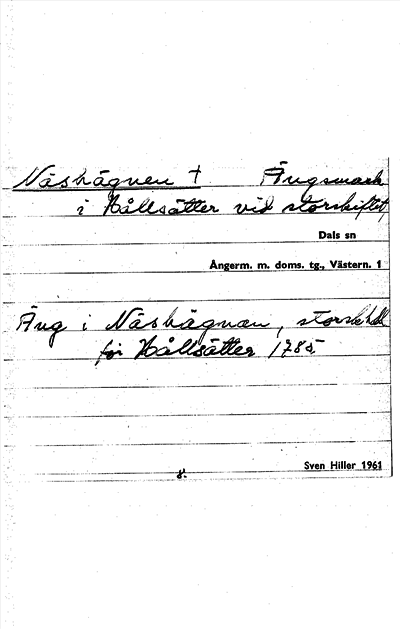 Näshägnen † Ängsmark
i Hållsätter vid storskiftet,
Dals sn
Ångerm. m. doms. tg., Västern. 1
Äng i Näshägnan, storsk hdl
för Hållsätter 1785.
Sven Hiller 1961
8.